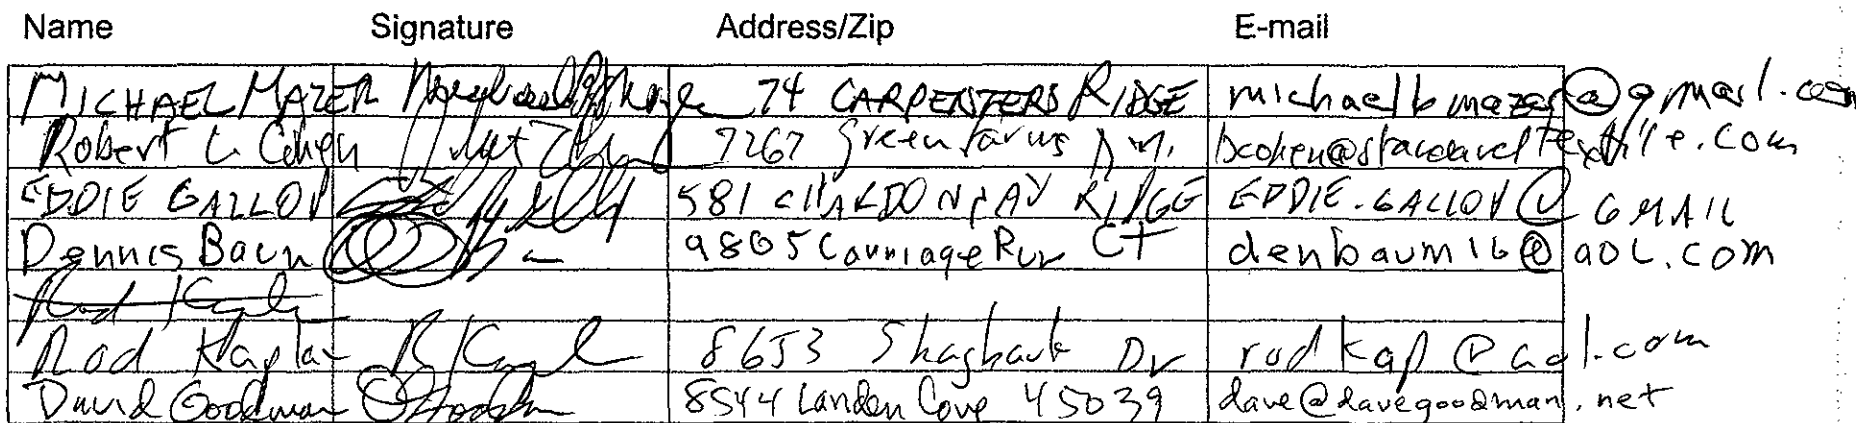 Name Signature Address/Zip E-mail
MICHAEL MAZER 74 CARPENTERS RIDGE michaelbmazer@gmail.com
Robert L. Cohen 7267 Green Farms Dr. bcohen@standardtextile.com
EDDIE GALLOV 581 CHARDONNAY RIDGE EDDIE.GALLOV@GMAIL
Dennis Baum 9805 Carriage Run CT denbaum16@aol.com
Rod Kaplan
Rod Kaplan R Kapl 8653 Shagbark Dr rodkap@aol.com
David Goodman 8544 Landen Cove 45039 dave@davegoodman.net